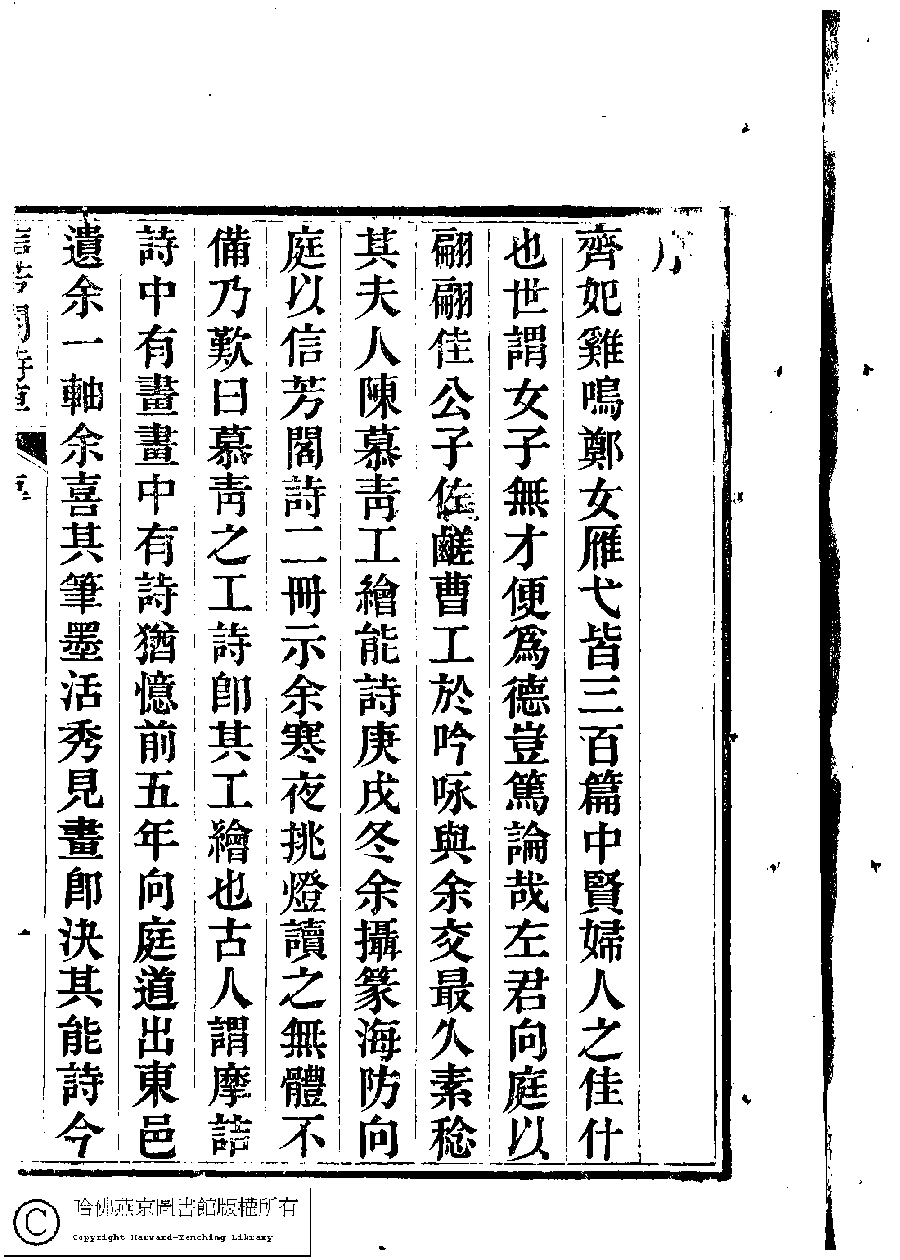 序
齊妃雞鳴鄭女雁弋皆三百篇中賢婦人之佳什
也世謂女子無才便爲德豈篤論哉左君向庭以
翩翩佳公子佐鹺曹工於吟咏與余交最久素稔
其夫人陳慕靑工繪能詩庚戌冬余攝篆海防向
庭以信芳閣詩二冊示余寒夜挑燈讀之無體不
備乃歎曰慕靑之工詩卽其工繪也古人謂摩詰
詩中有畫畫中有詩猶憶前五年向庭道出東邑
遺余一軸余喜其筆墨活秀見畫卽決其能詩今
信芳閣詩草
序
哈佛燕京圖書館版權所有
Copyright Harvard-Yenching Library